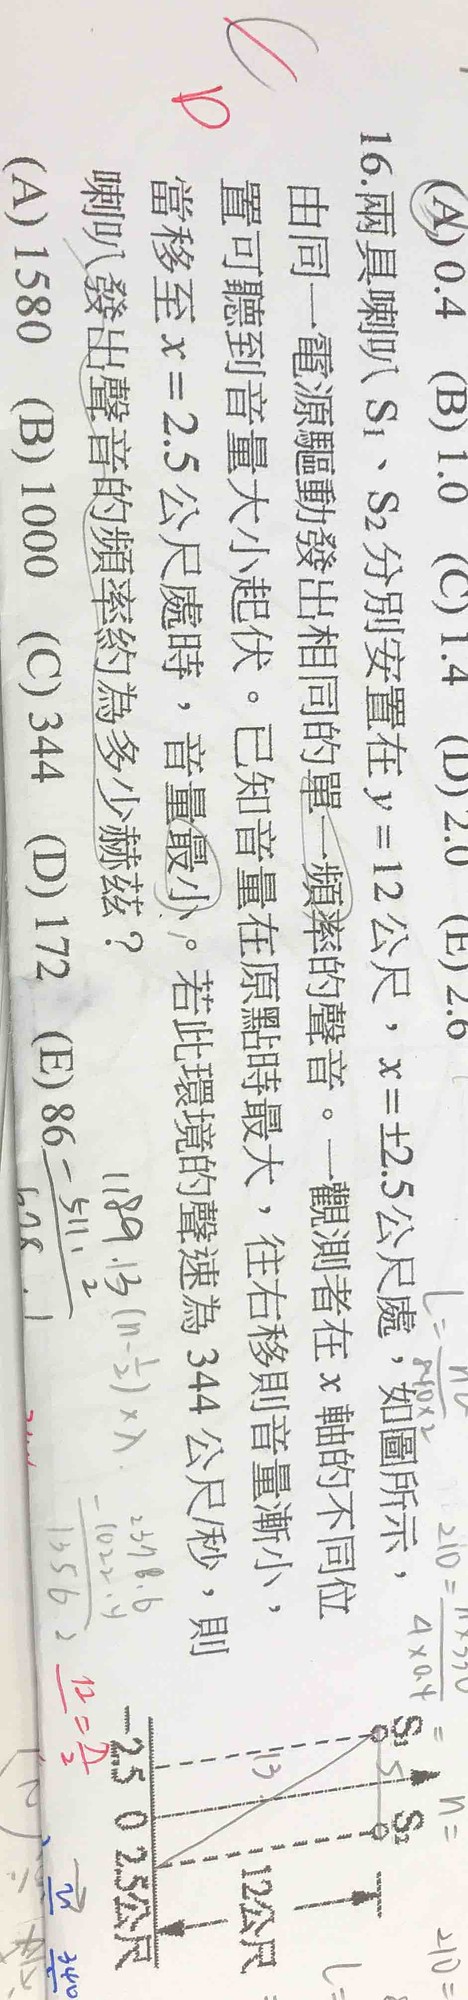 (A) 0.4 (B) 1.0 (C) 1.4 (D) 2.0 (E) 2.6
16.兩具喇叭 S₁、S₂ 分別安置在 y = 12 公尺，x = ±2.5 公尺處，如圖所示，
由同一電源驅動發出相同的單一頻率的聲音。一觀測者在 x 軸的不同位
置可聽到音量大小起伏。已知音量在原點時最大，往右移則音量漸小，
當移至 x = 2.5 公尺處時，音量最小。若此環境的聲速為 344 公尺/秒，則
喇叭發出聲音的頻率約為多少赫茲？
(A) 1580 (B) 1000 (C) 344 (D) 172 (E) 86
S₁ S₂
5
13
12公尺
-2.5 0 2.5公尺
D
1189
13
(n-½)×λ